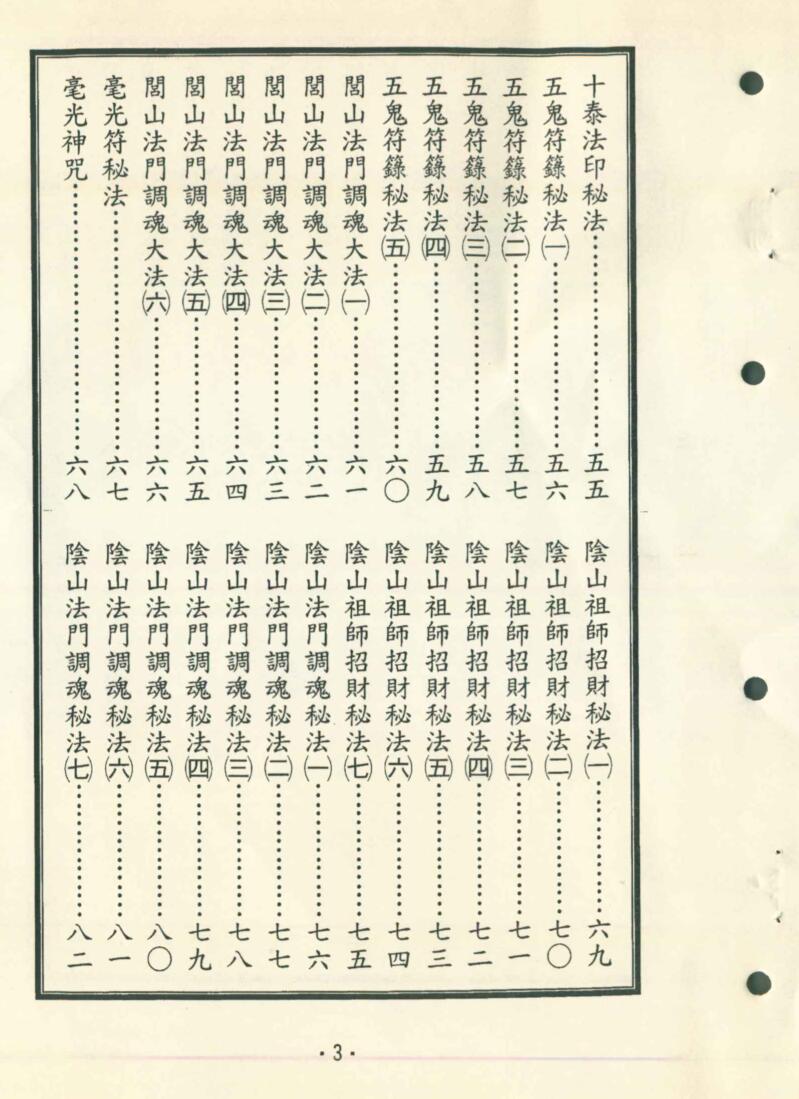 十泰法印秘法……………………五五
五鬼符籙秘法㈠……………………五六
五鬼符籙秘法㈡……………………五七
五鬼符籙秘法㈢……………………五八
五鬼符籙秘法㈣……………………五九
五鬼符籙秘法㈤……………………六〇
閭山法門調魂大法㈠……………………六一
閭山法門調魂大法㈡……………………六二
閭山法門調魂大法㈢……………………六三
閭山法門調魂大法㈣……………………六四
閭山法門調魂大法㈤……………………六五
閭山法門調魂大法㈥……………………六六
毫光符秘法……………………六七
毫光神咒……………………六八
陰山祖師招財秘法㈠……………………六九
陰山祖師招財秘法㈡……………………七〇
陰山祖師招財秘法㈢……………………七一
陰山祖師招財秘法㈣……………………七二
陰山祖師招財秘法㈤……………………七三
陰山祖師招財秘法㈥……………………七四
陰山祖師招財秘法㈦……………………七五
陰山法門調魂秘法㈠……………………七六
陰山法門調魂秘法㈡……………………七七
陰山法門調魂秘法㈢……………………七八
陰山法門調魂秘法㈣……………………七九
陰山法門調魂秘法㈤……………………八〇
陰山法門調魂秘法㈥……………………八一
陰山法門調魂秘法㈦……………………八二
·3·